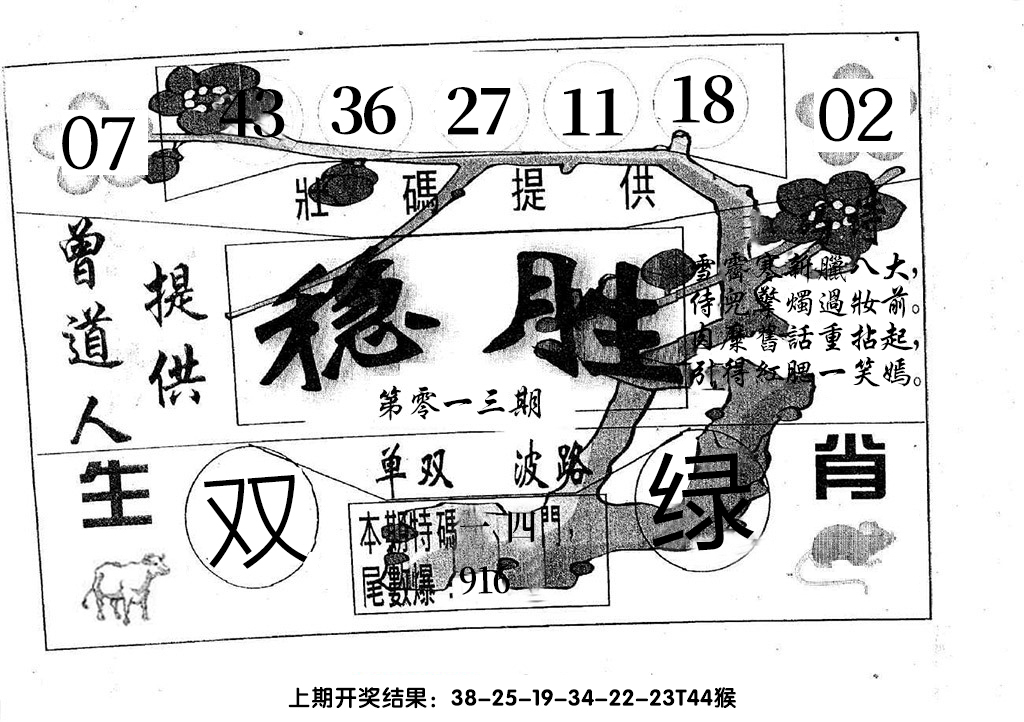 07 43 36 27 11 18 02
壯碼提供
曾道人
提供
稳胜
第零一三期
雪霽寒新臘八大，
侍兒驚燭過妝前。
肉糜舊話重拈起，
引得紅腮一笑嫣。
单双 波路
生肖
双 绿
本期特碼一、四門，
尾數爆：916
上期开奖结果：38-25-19-34-22-23T44猴